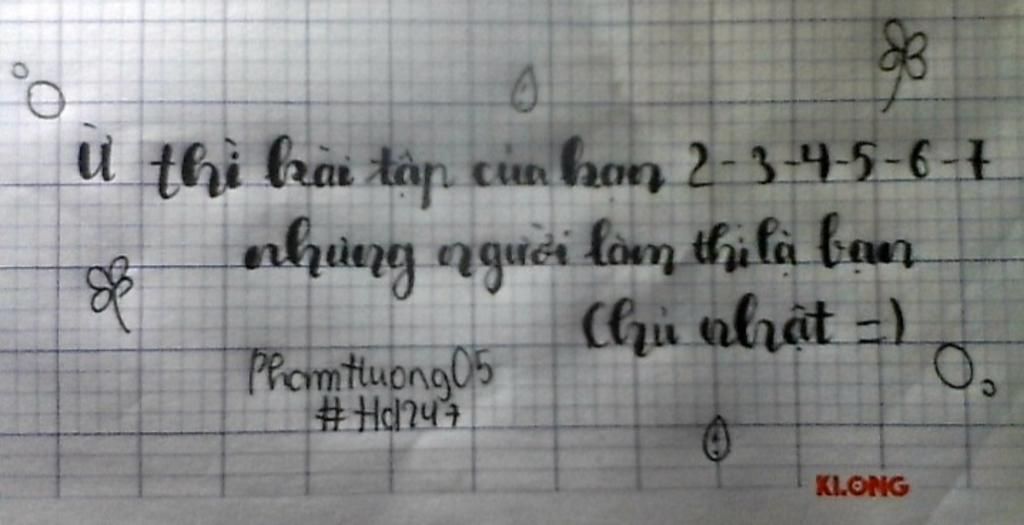 Ừ thì bài tập của bạn 2-3-4-5-6-7
nhưng người làm thì là bạn
(hủ nhật =)
PhamHuong05
#Hd247
KLONG